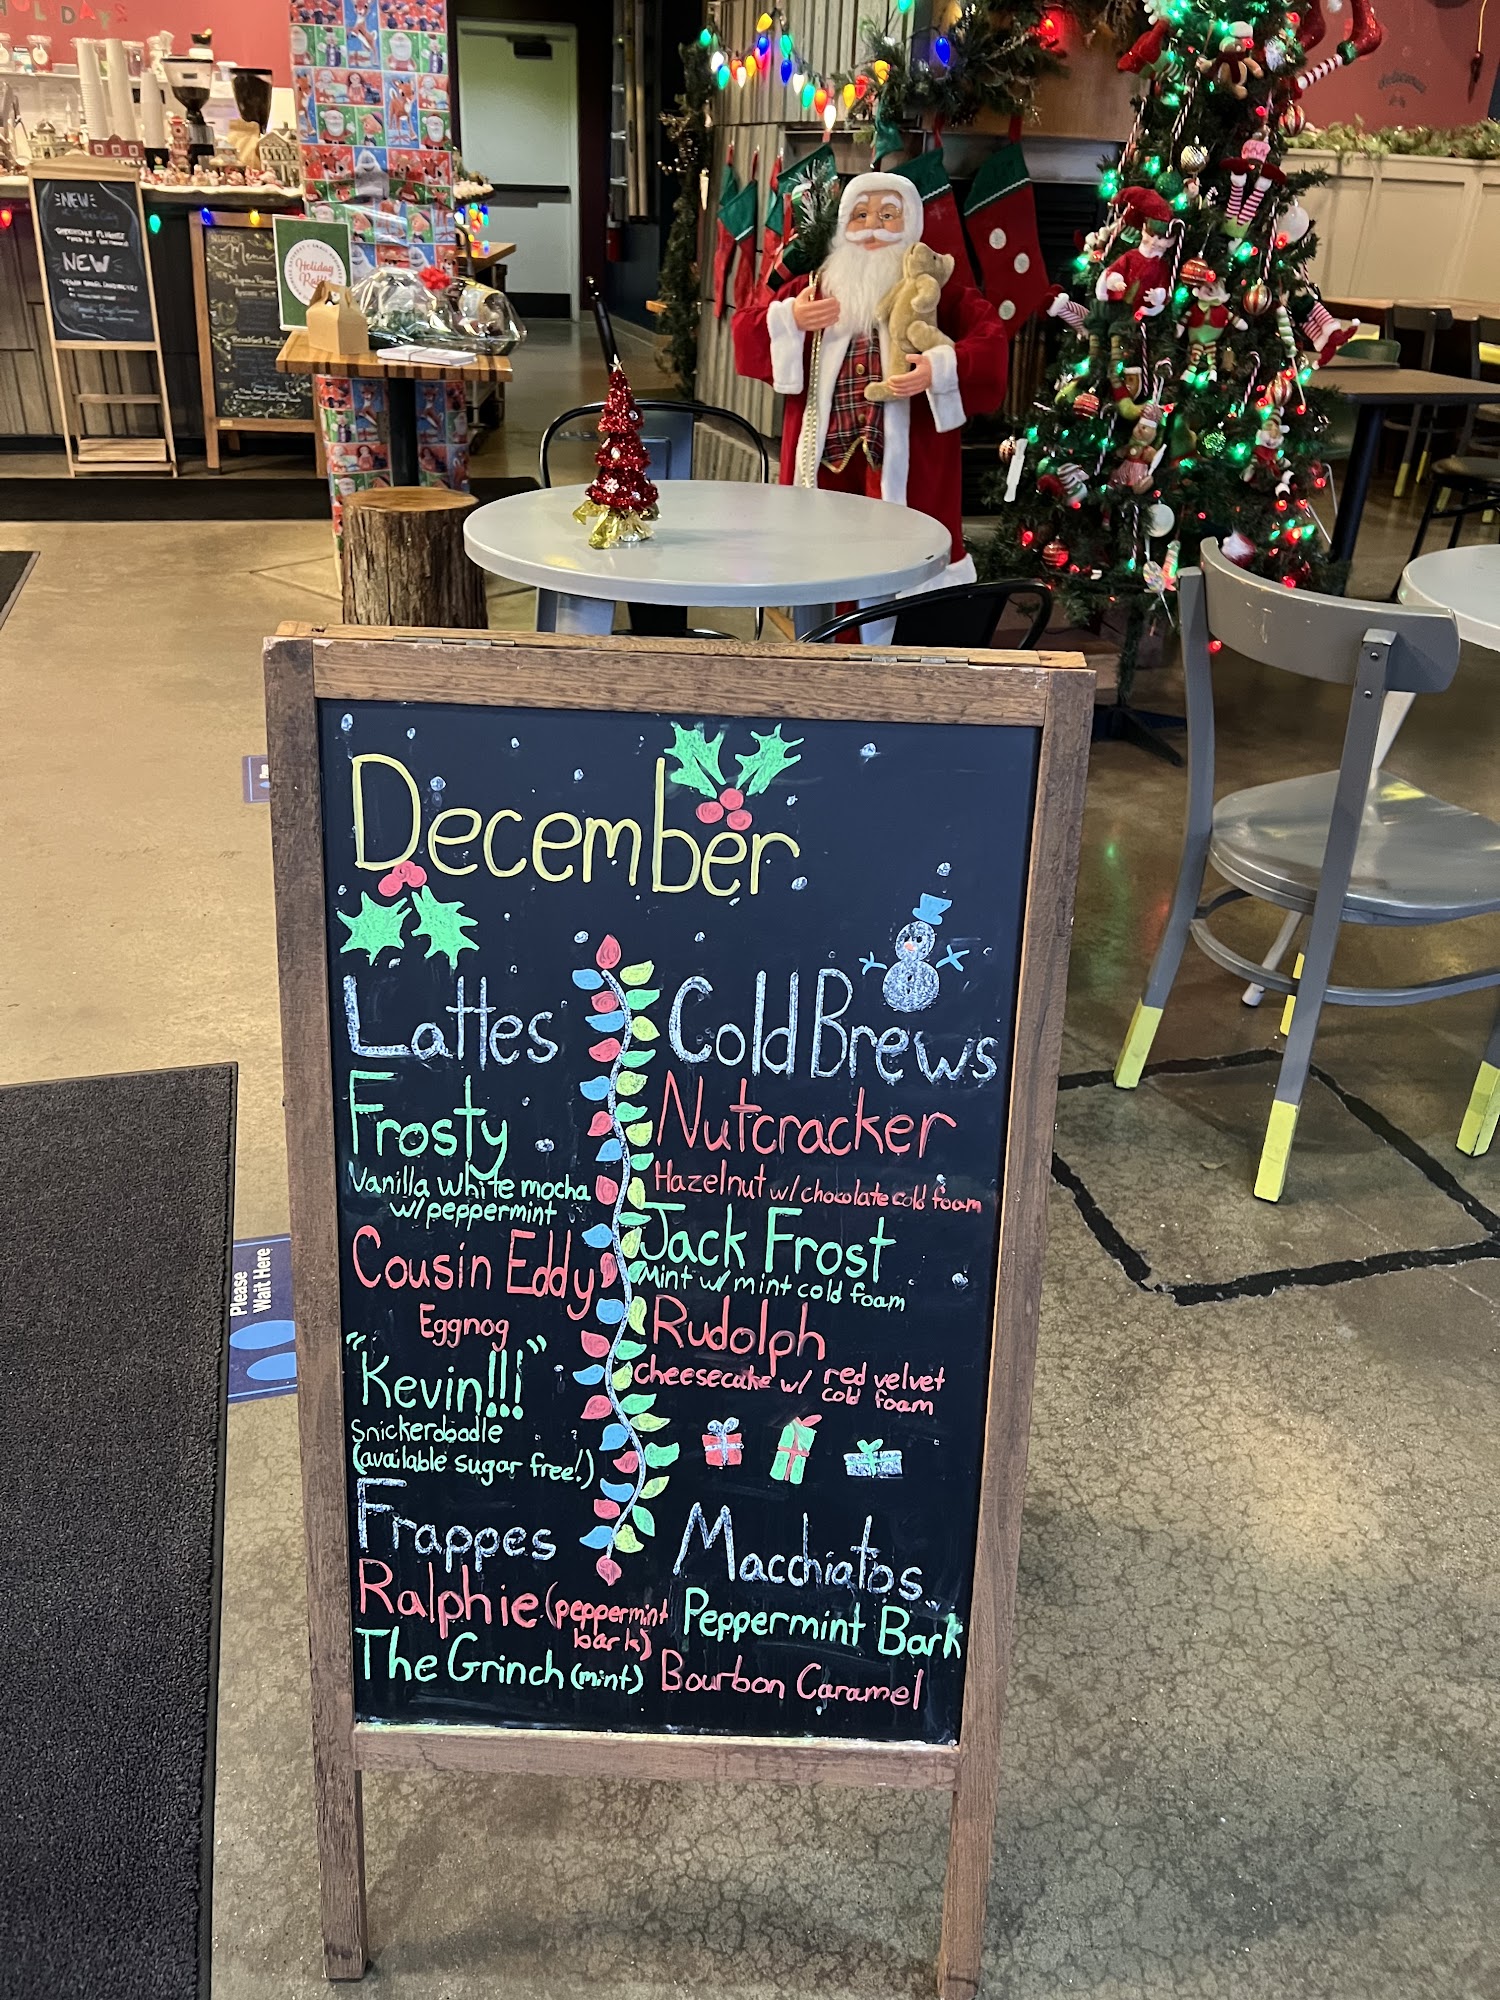 HOLIDAYS
NEW
NEW
Menu
Holiday
delicious
December
Lattes
Frosty
Vanilla white mocha
w/ peppermint
Cousin Eddy
Eggnog
"Kevin!!!"
Snickerdoodle
(available sugar free!)
Frappes
Ralphie (peppermint
bark)
The Grinch (mint)
Cold Brews
Nutcracker
Hazelnut w/ chocolate cold foam
Jack Frost
Mint w/ mint cold foam
Rudolph
cheesecake w/ red velvet
cold foam
Macchiatos
Peppermint Bark
Bourbon Caramel
Please
Wait Here